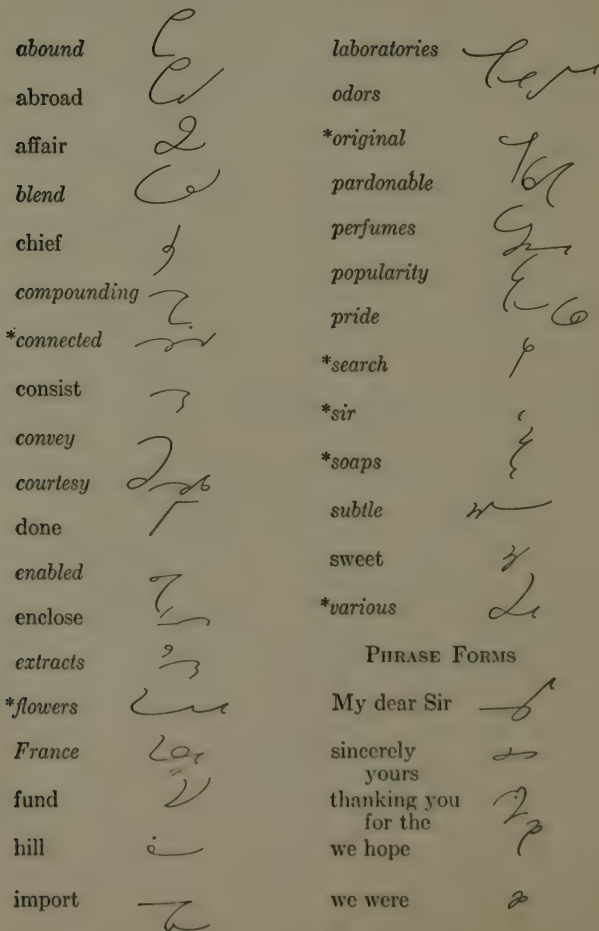 abound
abroad
affair
blend
chief
compounding
*connected
consist
convey
courtesy
done
enabled
enclose
extracts
*flowers
France
fund
hill
import
laboratories
odors
*original
pardonable
perfumes
popularity
pride
*search
*sir
*soaps
subtle
sweet
*various
PHRASE FORMS
My dear Sir
sincerely
yours
thanking you
for the
we hope
we were